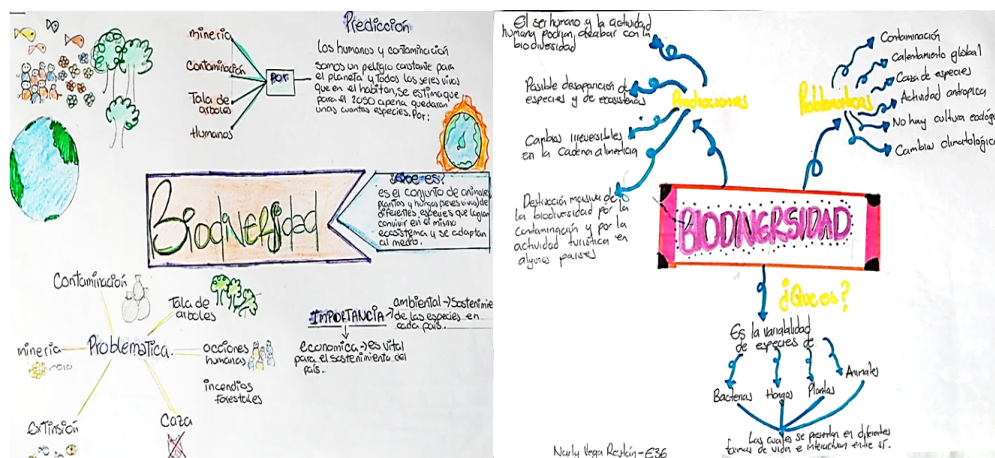 Predicción
minería
contaminación
Tala de
arboles
Humanos
Por:
Los humanos y contaminación
somos un peligro constante para
el planeta y todos los seres vivos
que en el habitan, se estima que
para el 2050 apena quedaran
unas cuantas especies. Por:
Biodiversidad
¿Que es?
es el conjunto de animales
plantas y hongos (seres vivos) de
diferentes especies que logran
convivir en el mismo
ecosistema y se adaptan
al medio.
Contaminación
Tala de
arboles
minería
Problemática.
acciones
humanas
incendios
forestales
Extinsión
Caza
IMPORTANCIA
ambiental → Sostenimie
de las especies en
cada país.
economica → es vital
para el sostenimiento del
país.
El ser humano y la actividad
humana podrian acabar con la
biodiversidad
Posible desaparición de
especies y de ecosistemas
Predicciones
Cambios irreversibles
en la cadena alimenticia
Destrucción masiva de
la biodiversidad por la
contaminación y por la
actividad turistica en
algunos paises
Problematicas
Contaminación
Calentamiento global
Caza de especies
Actividad antropica
No hay cultura ecológ
Cambios climatologico
BIODIVERSIDAD
¿Que es?
Es la variabilidad
de especies de
Bacterias
Hongos
Plantas
Animales
Las cuales se presentan en diferentes
formas de vida e interactuan entre sí.
Narly Vega - E36